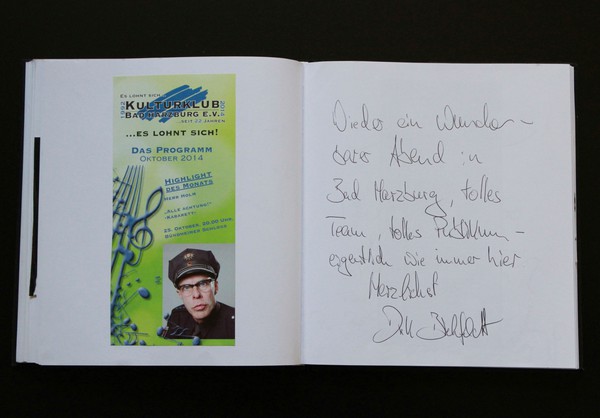 ES LOHNT SICH...
1992
KULTURKLUB
2014
BAD HARZBURG E.V.
...SEIT 22 JAHREN
...ES LOHNT SICH!
DAS PROGRAMM
OKTOBER 2014
HIGHLIGHT
DES MONATS
HERR HOLM
„ALLE ACHTUNG!"
-KABARETT-
25. OKTOBER, 20.00 UHR,
BÜNDHEIMER SCHLOSS
Wieder ein wunder-
barer Abend in
Bad Harzburg, tolles
Team, tolles Publikum -
eigentlich wie immer hier
Herzlichst
Dirk